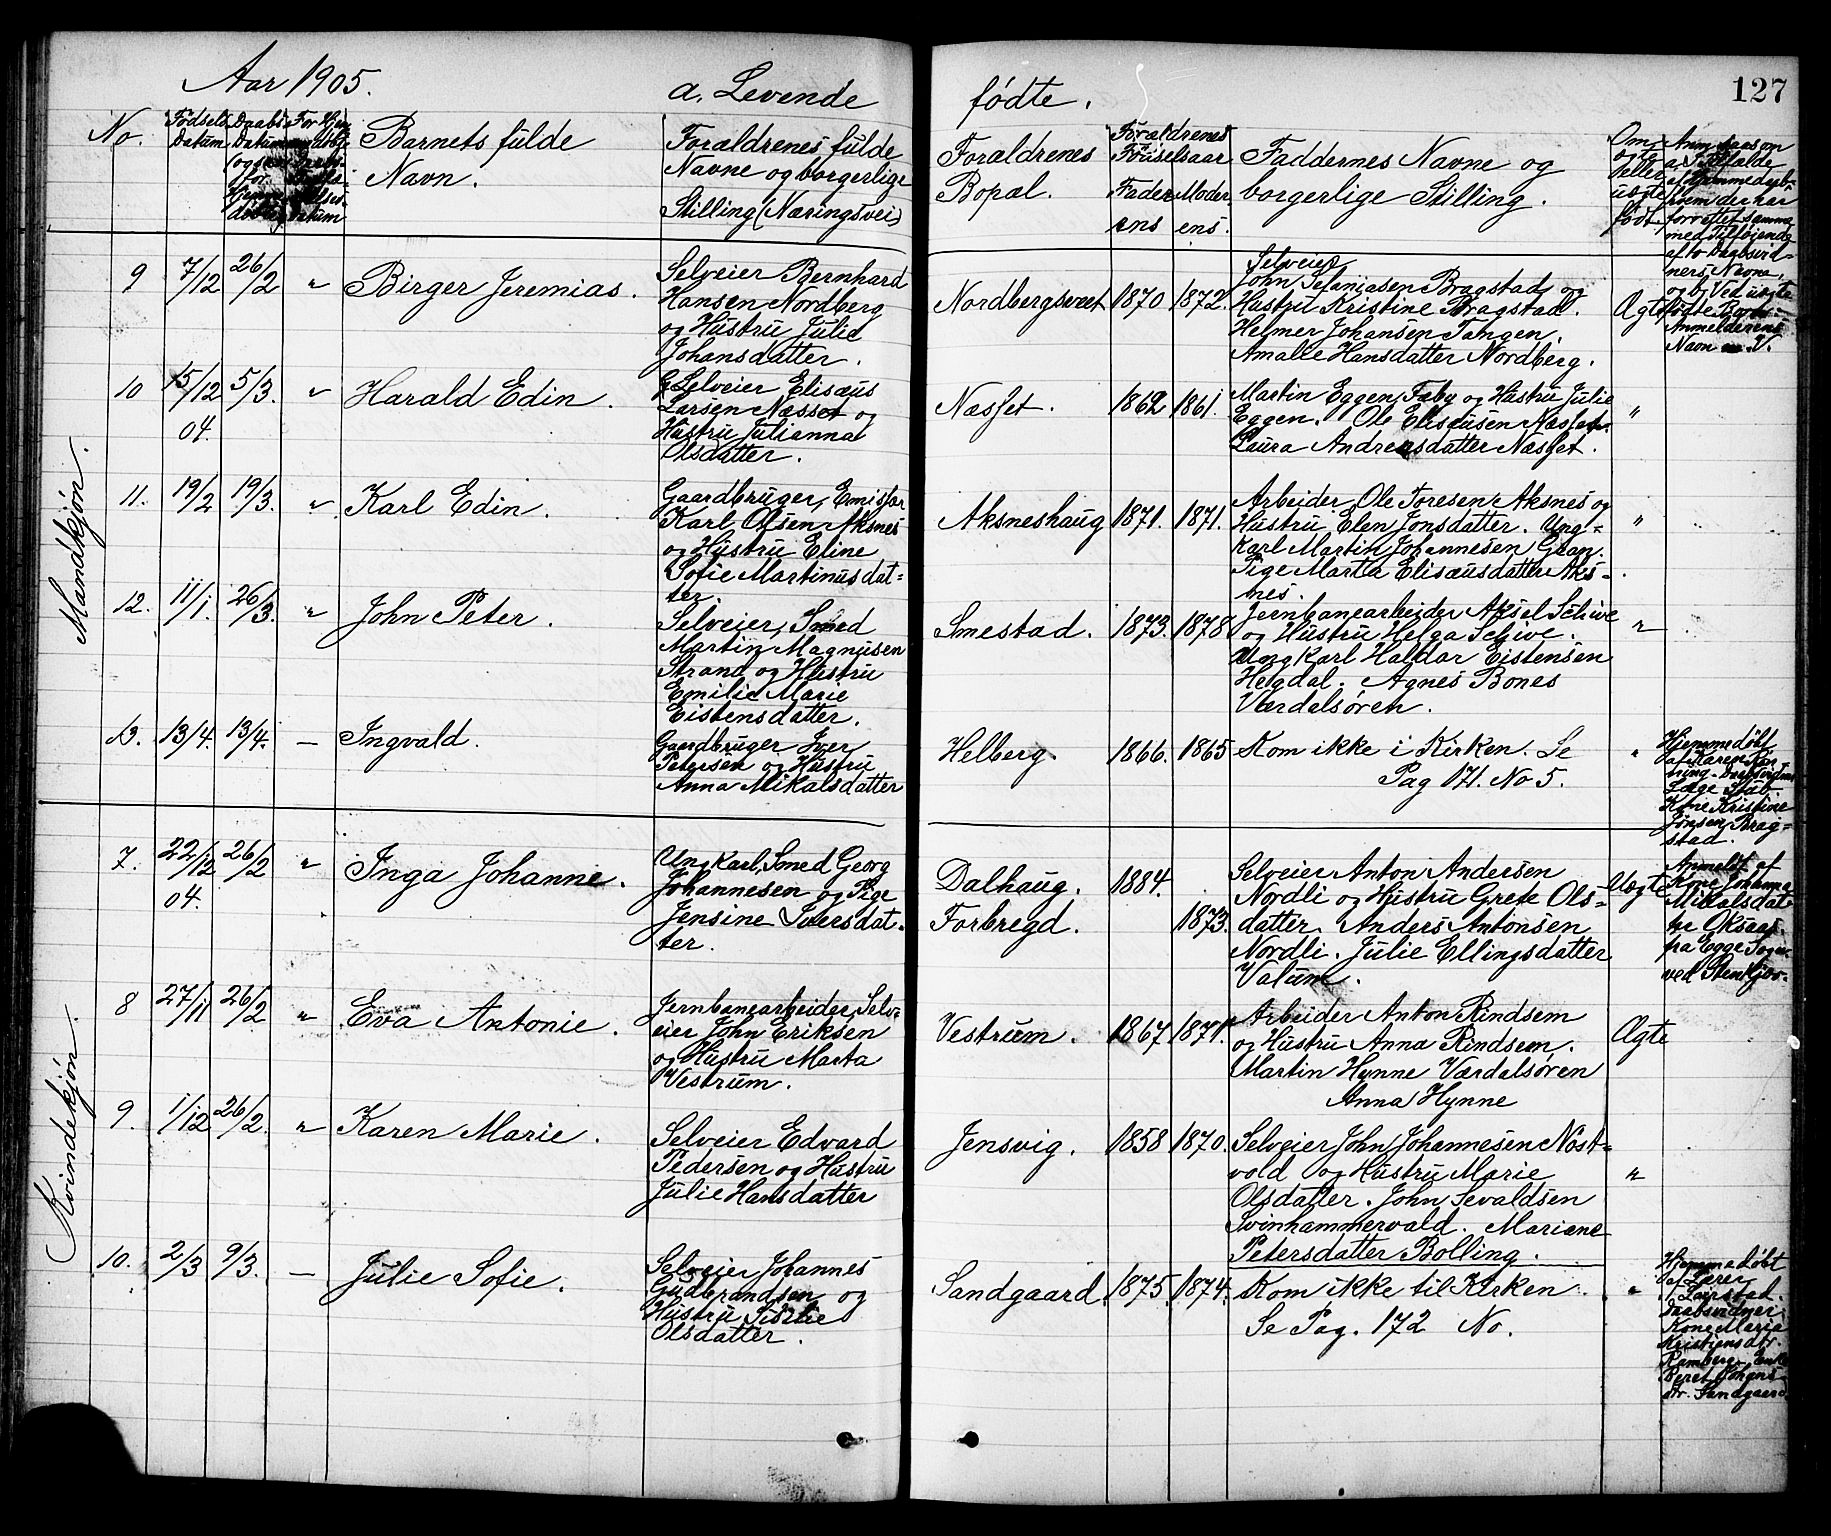 Aar 1905.
a. Levende
fødte.
127
No.
Fødsels
Datum
Daabs
Datum
Barnets fulde
Navn.
Forældrenes fulde
Navne og borgerlige
Stilling (Næringsvei)
Forældrenes
Bopæl.
Forældrenes
Fødselsaar
Faderens
Moderens.
Faddernes Navne og
borgerlige Stilling.
Om
ægte
eller
uægte
født.
Mandkjøn.
9 7/12 26/2 " Birger Jeremias.
Selveier Bernhard
Hansen Nordberg
og Hustru Julie
Johansdatter.
Nordbergsvæet 1870 1872.
Selveier
John Bragstad og
Hustru Kristine Bragstad.
Helmer Johansen Tangen.
Amalie Hansdatter Nordberg.
Ægte
10 15/12 5/3. " Harald Edin.
04.
Selveier Elisæus
Larsen Næsset og
Hustru Julianna
Olsdatter.
Næsset. 1862 1861.
Martin Eggen, Fæby og Hustru Julie
Eggen. Ole Elisæusen Næsset.
Laura Andreasdatter Næsset.
"
11. 19/2 19/3. " Karl Edin.
Gaardbruger, Emisfar
Karl Olsen Aksnes
og Hustru Eline
Sofie Martinusdat-
ter.
Aksneshaug 1871. 1871.
Arbeider Ole Toresen Aksnes og
Hustru Elen Jonsdatter. Ung-
karl Martin Johannesen Gran.
Pige Marta Elisæusdatter Aks-
nes.
"
12. 11/1. 26/3. " John Peter.
Selveier, Smed
Martin Magnusen
Strand og Hustru
Emilie Marie
Eistensdatter.
Smestad. 1873. 1878
Jernbanearbeider Aksel Schive
og Hustru Helga Schive.
Ungkarl Haldor Eistensen
Helgdal. Agnes Bones
Værdalsøren.
"
13. 13/4. 13/4. — Ingvald.
Gaardbruger Iver
Petersen og Hustru
Anna Mikalsdatter
Helberg. 1866. 1865
Kom ikke i Kirken. Se
Pag 171. No 5.
"
Hjemmedøbt
Kone Kristine
Jønsen Brag-
stad.
Kvindekjøn.
7. 22/12 26/2 " Inga Johanne.
04.
Ungkarl, Smed Georg
Johannesen og Pige
Jensine Iversdat-
ter.
Dalhaug. 1884.
Forbregd. 1873.
Selveier Anton Andersen
Nordli og Hustru Grete Ols-
datter. Anders Antonsen
Nordli. Julie Ellingsdatter
Valum.
Uægte
Anmeldt af
Kone Johanna
Mikalsdat-
ter Oksaas
fra Egge Sogn
ved Stenkjær.
8 27/11 26/2 " Eva Antonie.
Jernbanearbeider, Selv-
eier John Eriksen
og Hustru Marta
Vestrum.
Vestrum. 1867 1871.
Arbeider Anton Rindsem
og Hustru Anna Rindsem.
Martin Hynne Værdalsøren
Anna Hynne
Ægte
9. 1/12 26/2. " Karen Marie.
Selveier Edvard
Pedersen og Hustru
Julie Hansdatter
Jensvig. 1858 1870.
Selveier John Johannesen Nøst-
vold og Hustru Marie
Olsdatter. John Sevaldsen
Svinhammervald. Mariane
Petersdatter Bolling.
"
10. 2/3 9/3. — Julie Sofie.
Selveier Johannes
Gudbrandsen og
Hustru
Olsdatter.
Sandgaard 1875. 1874.
Kom ikke til Kirken.
Se Pag. 172 No.
"
Hjemmedøbt
af Lærer
Kone Marie
Kristiensdtr.
Ramberg. Enke
Beret Johns-
dtr. Sandgaard